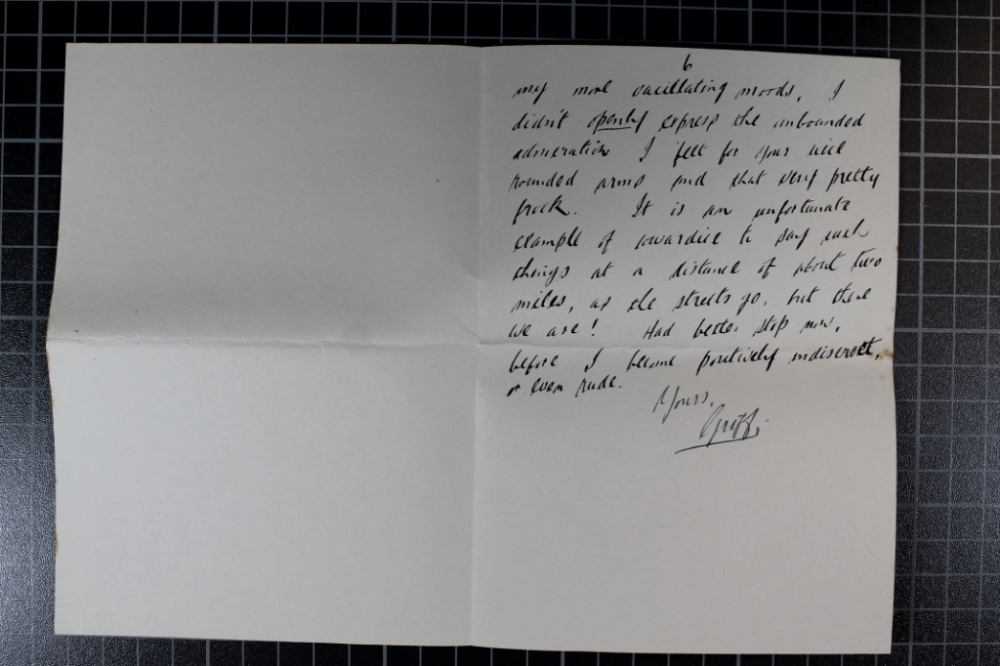 6
my more vacillating moods, I
didn't openly express the unbounded
admiration I felt for your well
rounded arms and that very pretty
frock. It is an unfortunate
example of cowardice to say such
things at a distance of about two
miles, as the streets go, but there
we are! Had better stop now,
before I become positively indiscreet,
or even rude.
Yours,
Griff.